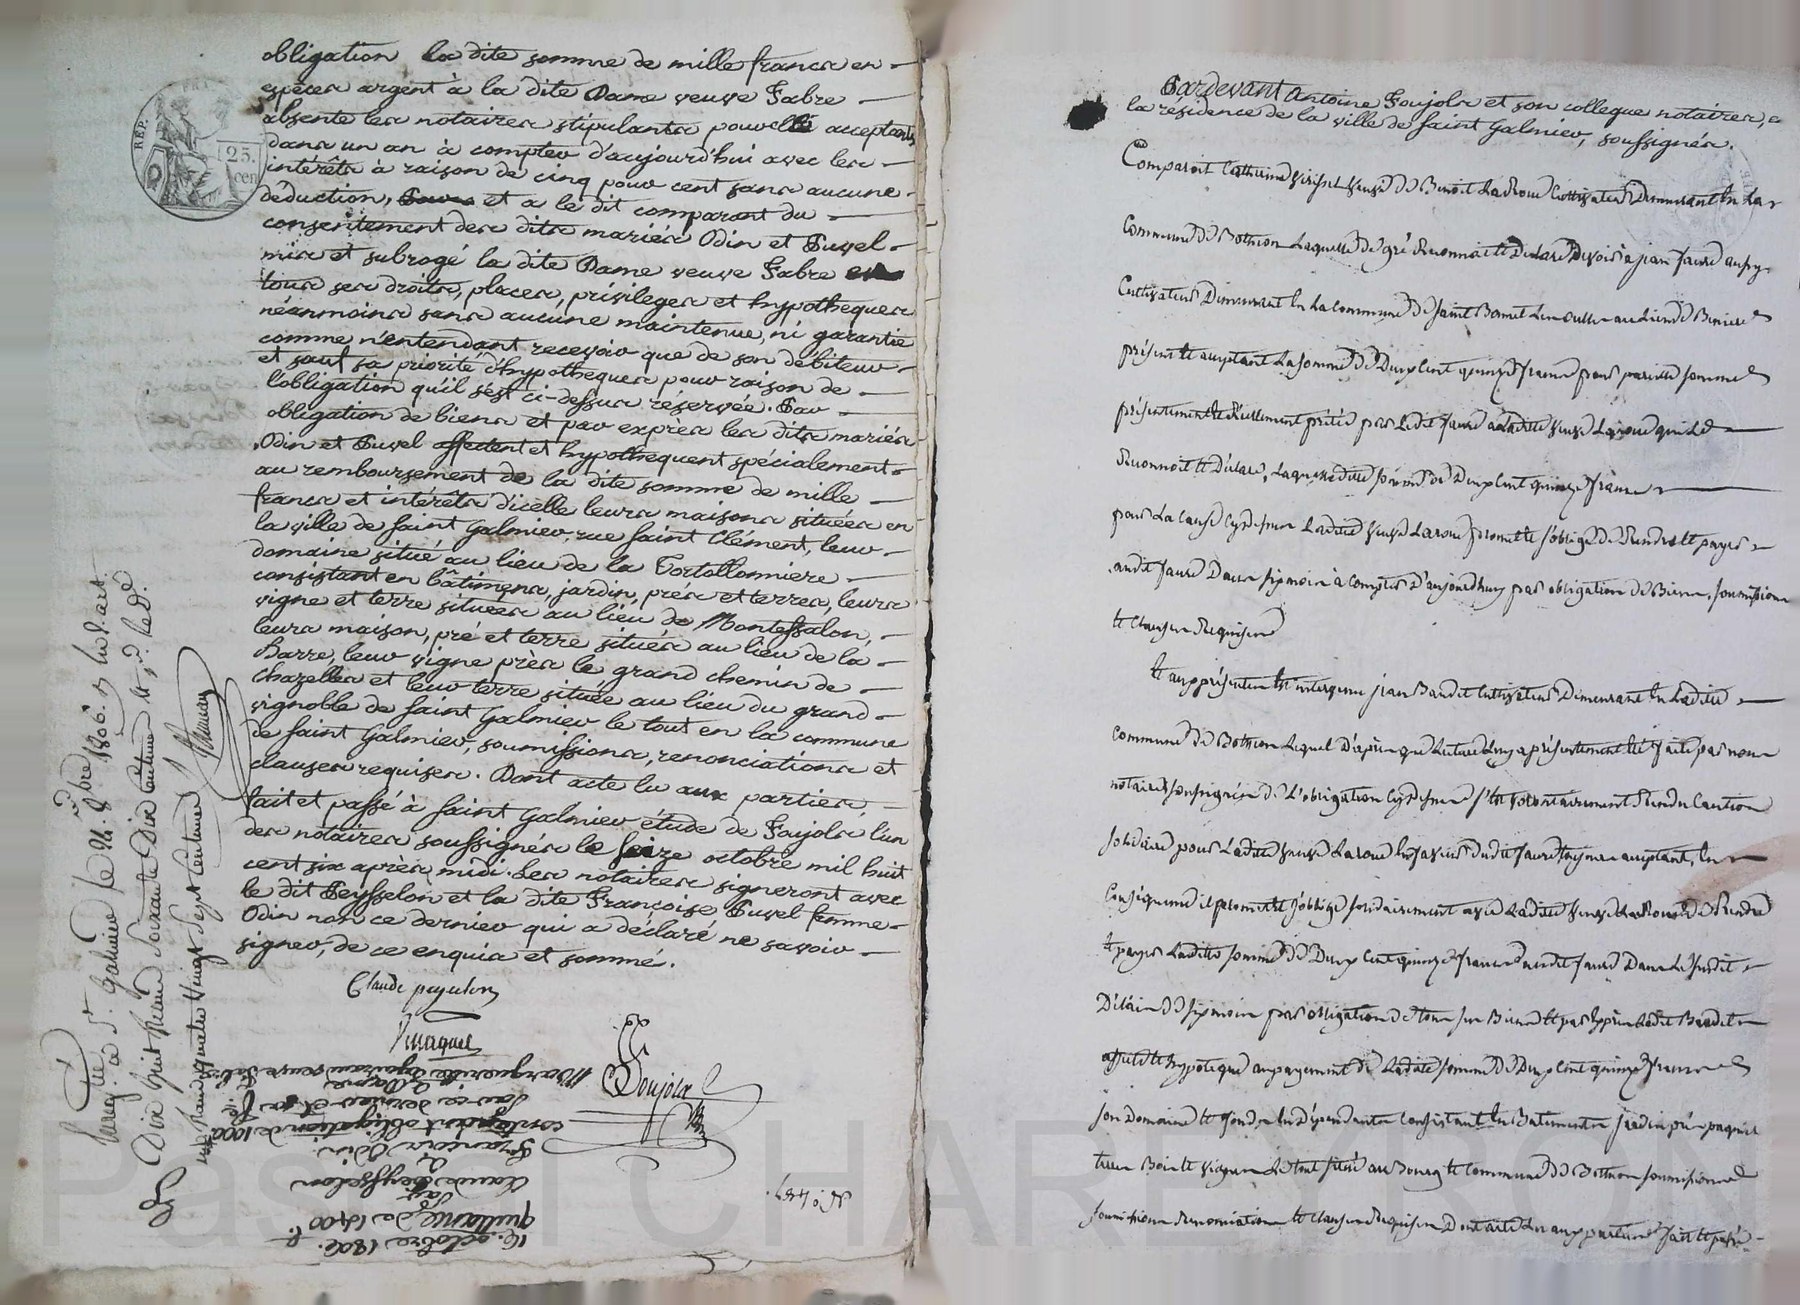 obligation la dite somme de mille francs en
espèces argent à la dite Dame veuve Fabre
absente les notaires stipulants pour elle acceptants
dans un an à compter d'aujourd'hui avec les
intérêts à raison de cinq pour cent sans aucune
déduction, et a le dit comparant du
consentement des dits mariés Odin et Buvel
mis et subrogé la dite Dame veuve Fabre en
tous ses droits, places, privileges et hypotheques
néanmoins sans aucune maintenue, ni garantie
comme n'entendant recevoir que de son débiteur
et sauf sa priorité d'hypotheques pour raison de
l'obligation qu'il s'est ci-dessus réservée. Par
obligation de biens et par exprès les dits mariés
Odin et Buvel affectent et hypothequent spécialement
au remboursement de la dite somme de mille
francs et intérêts d'icelle leurs maisons situées en
la ville de Saint Galmier, rue Saint Clément, leur
domaine situé au lieu de la Tortollonniere
consistant en bâtimens, jardin, près et terres, leurs
vigne et terre situées au lieu de Montessalon,
leurs maison, pré et terre situés au lieu de la
Barre, leur vigne près le grand chemin de
Chazelles et leur terre située au lieu du grand
vignoble de Saint Galmier le tout en la commune
de Saint Galmier, soumissions, renonciations et
clauses requises. Dont acte lu aux parties
fait et passé à Saint Galmier étude de Poujols l'un
des notaires soussignés le seize octobre mil huit
cent six après midi. Les notaires signeront avec
le dit Peysselon et la dite Françoise Buvel femme
Odin non ce dernier qui a déclaré ne savoir
signer, de ce enquis et sommé.
Claude peyselon
Poujols
REP. FRA
25.
cen
Enreg. té à St. Galmier le 24 8bre 1806.
Dix huit
quatre Vingt Sept Centimes
16. octobre 1806.
quittance de 1400 f.
par
Claude Peysselon
à
François Odin
contenant obligation de 1000 f.
par ce dernier
à Dame
Marguerite veuve Fabre
N.o 4857.
Pardevant Antoine Poujols et son collegue notaires, a
la résidence de la ville de Saint Galmier, soussignés.
Comparoit Catherine veuve de Benoit Laroue Cultivateur Demeurant en La
Commune de Bothéon Laquelle de gré Reconnait et Déclare Devoir à jean faure
Cultivateur Demeurant en La Commune de Saint Bonnet Les oulles au Lieu de
présent et acceptant La Somme de Deux Cent quinze francs pour pareille somme
présentement et Réellement prêtée par Ledit faure à Ladite veuve Laroue qui Le
Reconnoit et Déclare, Laquelle dite somme de Deux Cent quinze francs
pour La Cause Cydessus Ladite veuve Laroue promet et s'oblige de Rendre et payer
audit faure Dans six mois à Compter D'aujourdhuy par obligation de Biens, soumissions
et Clauses Requises
Et aux présentes Est intervenu jean Baudit Cultivateur Demeurant En Ladite
Commune de Bothéon Lequel D'après que Lecture Luy a présentement été faite par nous
notaires soussignés de L'obligation Cydessus s'est volontairement Rendu Caution
solidaire pour Ladite veuve Laroue En faveur dudit faure toujours acceptant, En
Conséquence il promet et s'oblige solidairement avec Ladite veuve Laroue de Rendre
et payer Ladite somme de Deux Cent quinze francs audit faure Dans Le susdit
Délai de six mois par obligation de tous ses Biens et par Exprès Ledit Baudit
affecte et hypoteque au payement de Ladite somme de Deux Cent quinze francs
son Domaine et fonds en dépendants Consistant En Batiments jardin prés paquis
terres Bois et vignes Le tout situé au Bourg et Commune de Bothéon soumissions
soumissions Renonciations et Clauses Requises Dont acte Lu aux parties fait et passé